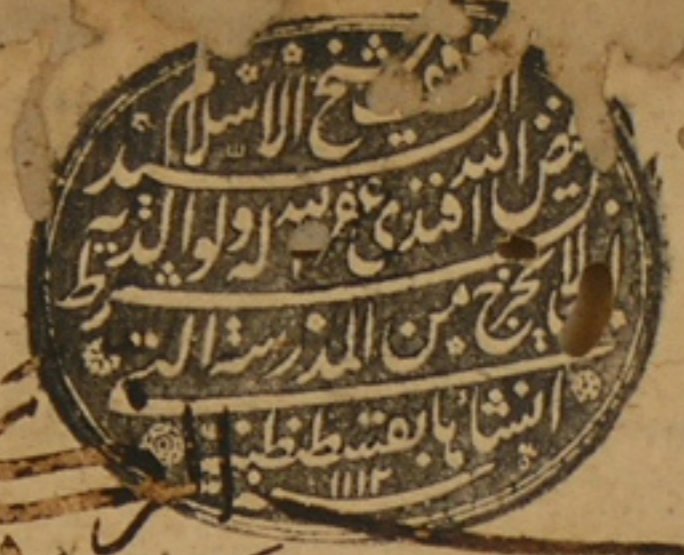 وقف شيخ الاسلام السيد
فيض الله افندي غفر الله له ولوالديه بشرط
ان لا يخرج من المدرسة التي
انشأها بقسطنطينية
١١١٢